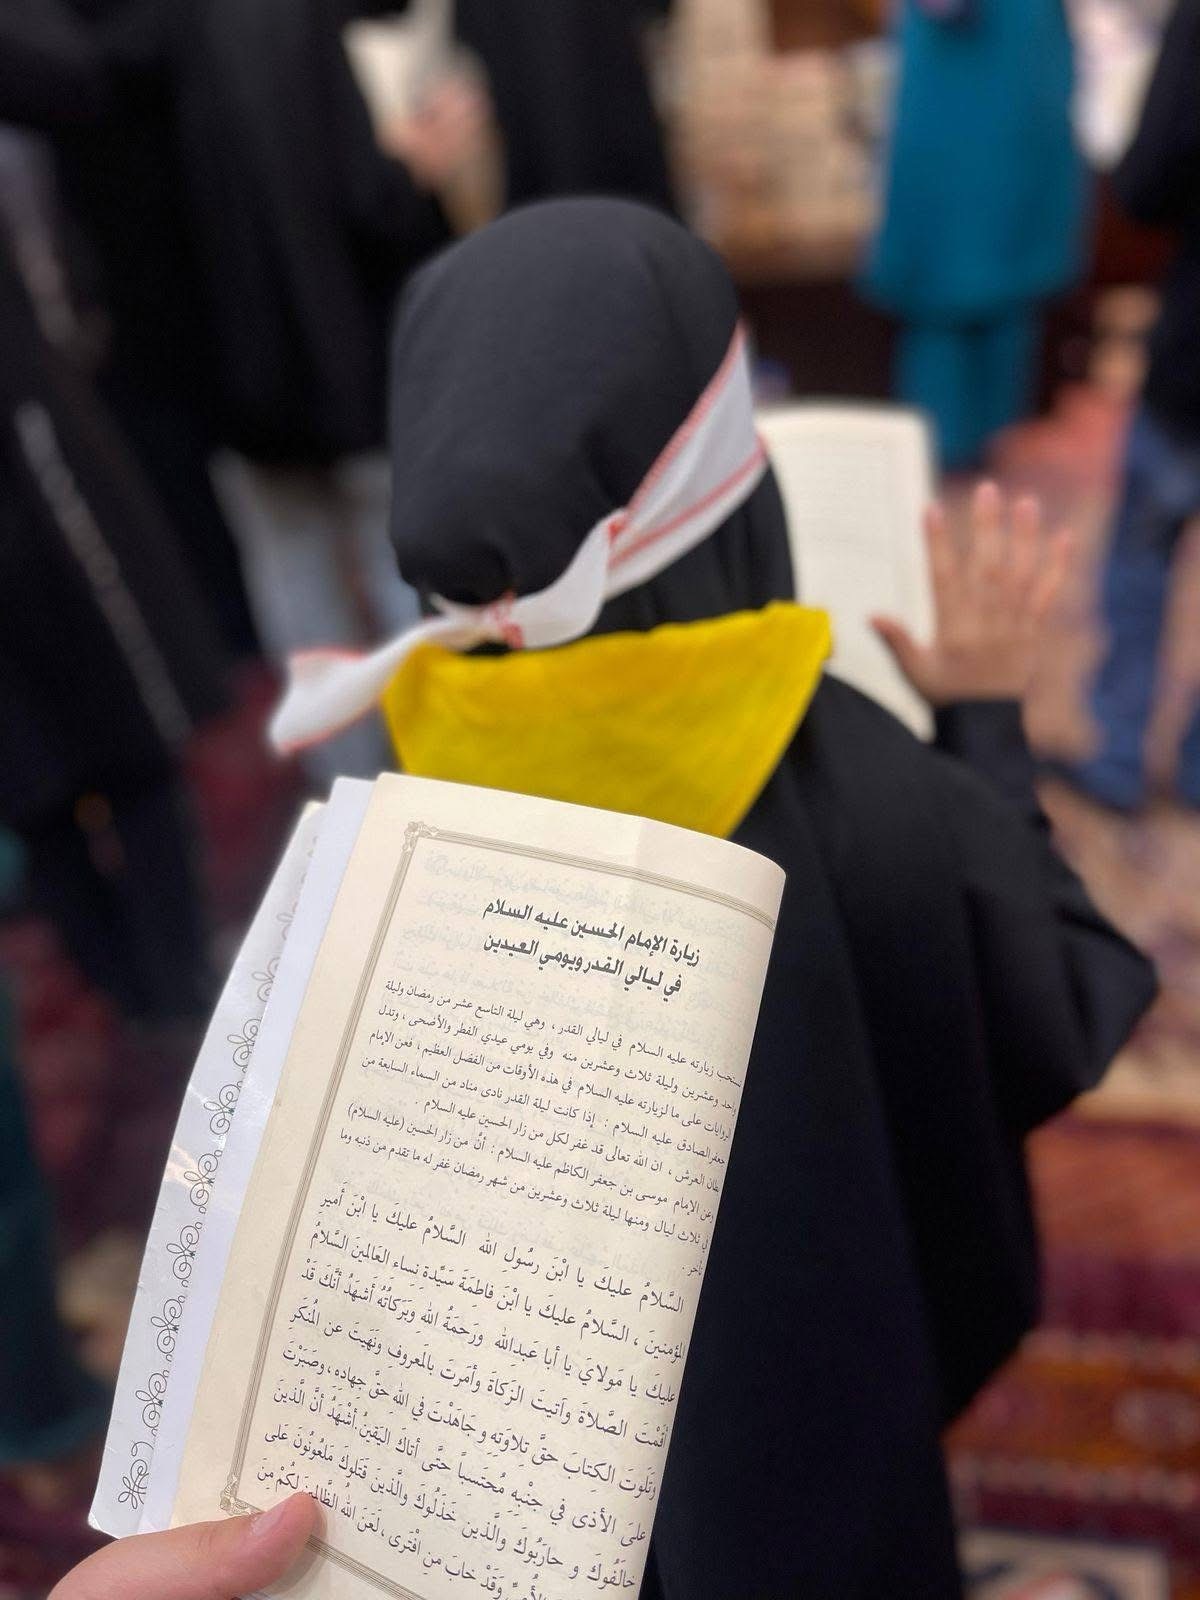 زيارة الإمام الحسين عليه السلام
في ليالي القدر ويومي العيدين
تستحب زيارته عليه السلام في ليالي القدر ، وهي ليلة التاسع عشر من رمضان وليلة
واحد وعشرين وليلة ثلاث وعشرين منه وفي يومي عيدي الفطر والأضحى ، وتدل
الروايات على ما لزيارته عليه السلام في هذه الأوقات من الفضل العظيم ، فعن الإمام
جعفر الصادق عليه السلام : إذا كانت ليلة القدر نادى مناد من السماء السابعة من
بطنان العرش ، ان الله تعالى قد غفر لكل من زار الحسين عليه السلام .
وعن الإمام موسى بن جعفر الكاظم عليه السلام : أنّ من زار الحسين (عليه السلام)
في ثلاث ليال ومنها ليلة ثلاث وعشرين من شهر رمضان غفر له ما تقدم من ذنبه وما
تأخر .
السَّلامُ عليكَ يا ابْنَ رسُولِ الله السَّلامُ عليكَ يا ابْنَ أميرِ
المؤمنينَ ، السَّلامُ عليكَ يا ابْنَ فاطِمَةَ سَيِّدةِ نِساء العَالمينَ السَّلامُ
عليكَ يا مَولايَ يا أبا عَبدِالله ورَحمَةُ اللهِ وَبَركاتُهُ أشهَدُ أنَّكَ قَدْ
أقَمْتَ الصَّلاةَ وآتيتَ الزَّكاةَ وأمَرتَ بالَمعروفِ ونَهيتَ عن الُمنكَر
وَتلَوتَ الكِتابَ حقَّ تِلاوَتِهِ و جَاهَدْتَ في اللهِ حقَّ جهاده ، وصَبَرْتَ
علىَ الأذى في جنْبِهِ مُحتَسِباً حتَّى أتاكَ اليَقينُ.أشْهَدُ أنَّ الَّذينَ
خالَفُوكَ و حارَبُوكَ والَّذين خَذَلُوكَ والَّذينَ قَتَلوكَ مَلعُونُونَ على
وَقَدْ خابَ منِ افْتَرى ، لَعَنَ اللهُ الظَّالِمِينَ لكُمْ مِنَ